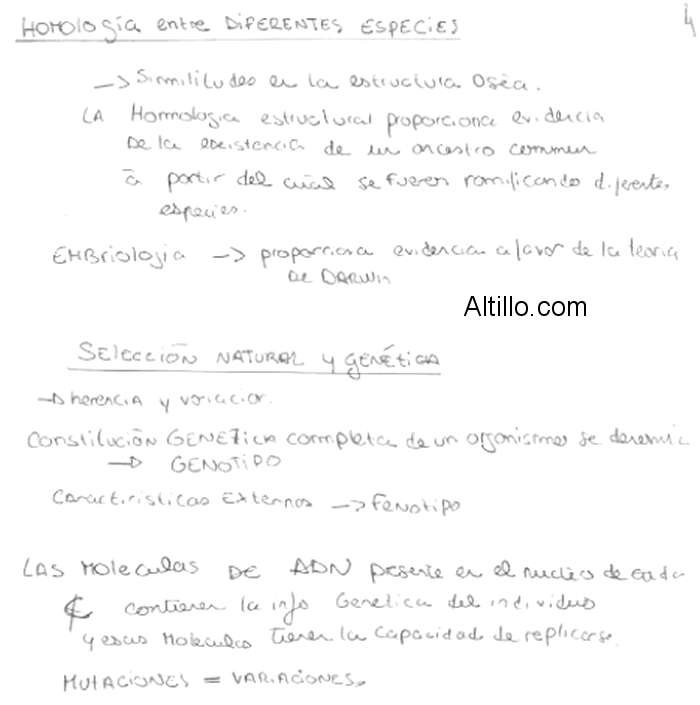 Homología entre DIFERENTES ESPECIES 4
-> Simmilitudes en la estructura Osea.
LA Homologia estructural proporciona evidencia
De la existencia de un ancestro commun
a partir del cual se fueron ramificando diferentes
especies.
EMBriologia -> proporciona evidencia a favor de la teoria
De DARWIN
Altillo.com
Selección NATURAL y genética
-> herencia y variacion.
Constitución GENETICA completa de un organismo se denomina
-> GENOTIPO
Caractiristicas Externas -> Fenotipo
LAS Moleculas DE ADN presente en el nucleo de cada
contienen la info Genetica del individuo
y esas Moleculas Tienen la capacidad de replicarse.
MUTACIONES = VARIACIONES.